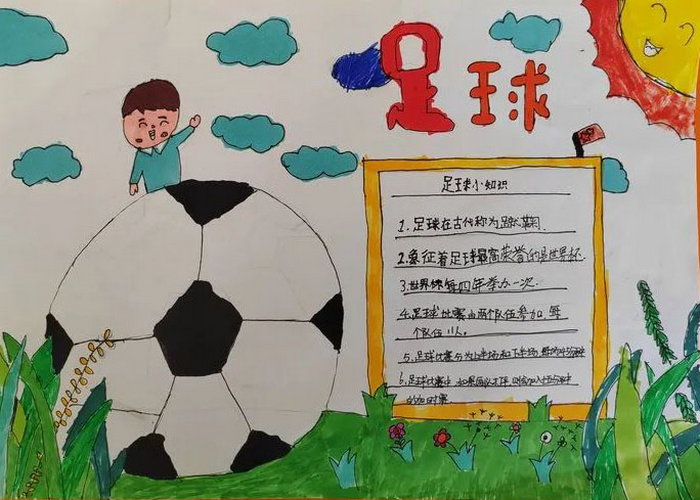 足球
足球小知识
1.足球在古代称为蹴鞠
2.象征着足球最高荣誉的是世界杯
3.世界杯每四年举办一次.
4.足球比赛由两个队伍参加每
个队伍11人.
5.足球比赛分为上半场和下半场
6.足球比赛中
的加时赛